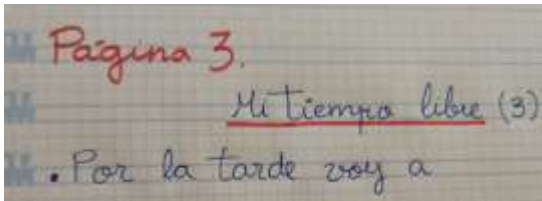 Página 3.
Mi tiempo libre (3)
• Por la tarde voy a